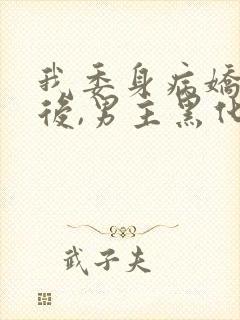 我委身病嬌
後,男主黑化
武子夫